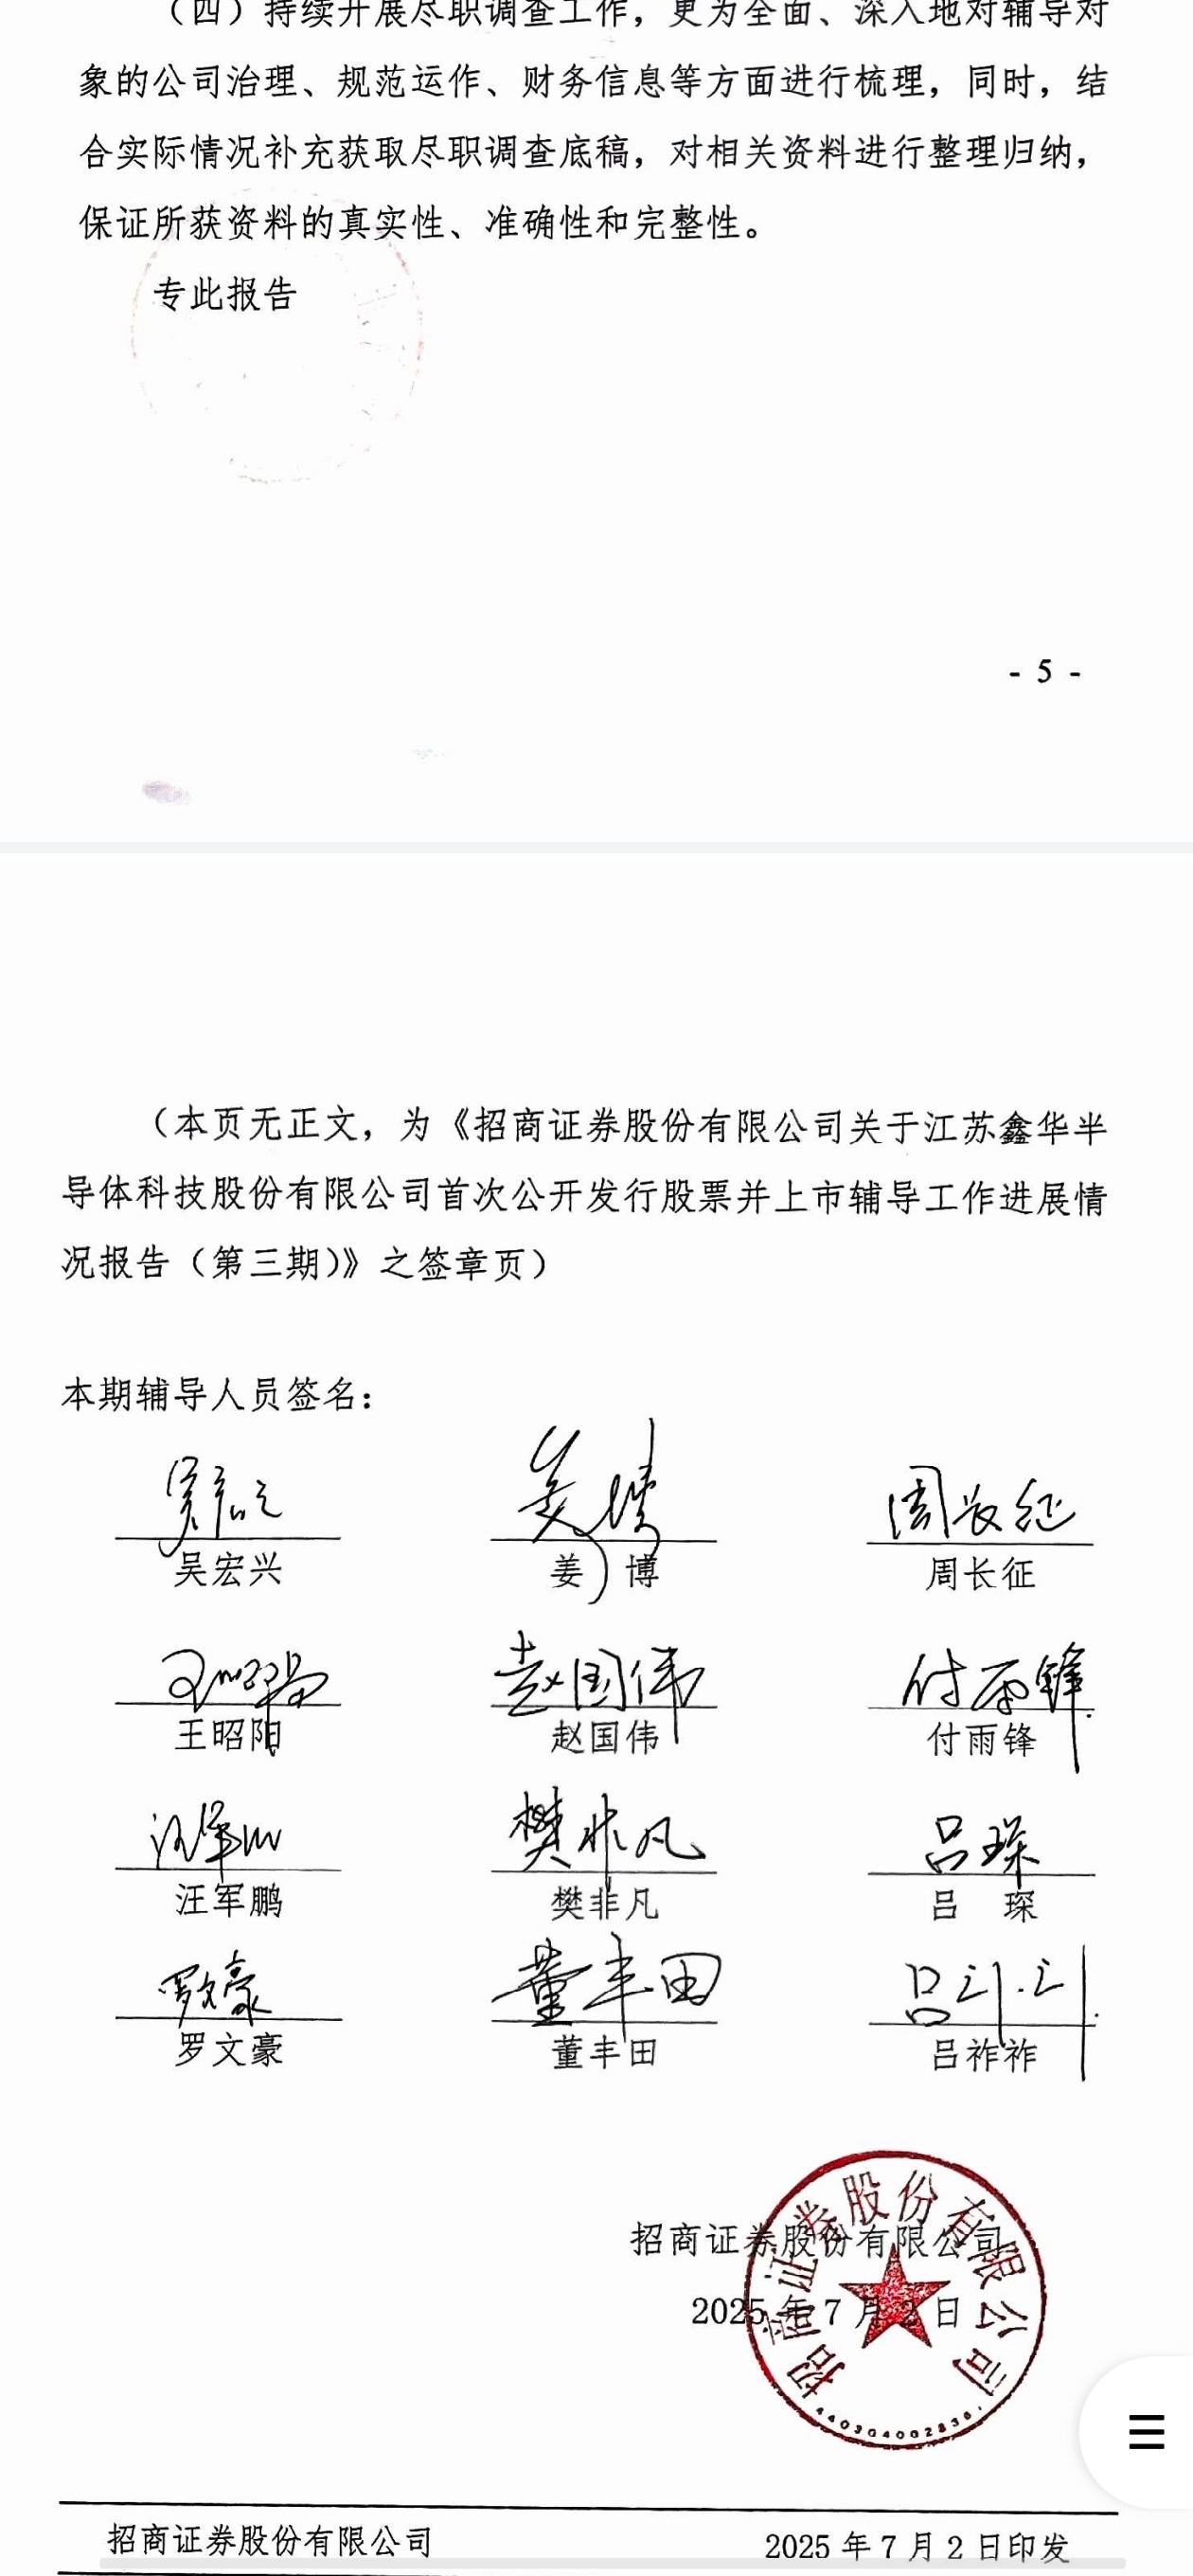 （四）持续开展尽职调查工作，更为全面、深入地对辅导对
象的公司治理、规范运作、财务信息等方面进行梳理，同时，结
合实际情况补充获取尽职调查底稿，对相关资料进行整理归纳，
保证所获资料的真实性、准确性和完整性。
专此报告
- 5 -
（本页无正文，为《招商证券股份有限公司关于江苏鑫华半
导体科技股份有限公司首次公开发行股票并上市辅导工作进展情
况报告（第三期）》之签章页）
本期辅导人员签名：
吴宏兴 姜博 周长征
吴宏兴 姜 博 周长征
王昭阳 赵国伟 付雨锋
王昭阳 赵国伟 付雨锋
汪军鹏 樊非凡 吕琛
汪军鹏 樊非凡 吕 琛
罗文豪 董丰田 吕祚祚
罗文豪 董丰田 吕祚祚
招商证券股份有限公司
招商证券股份有限公司
2025 年 7 月 2 日
招商证券股份有限公司 2025 年 7 月 2 日印发